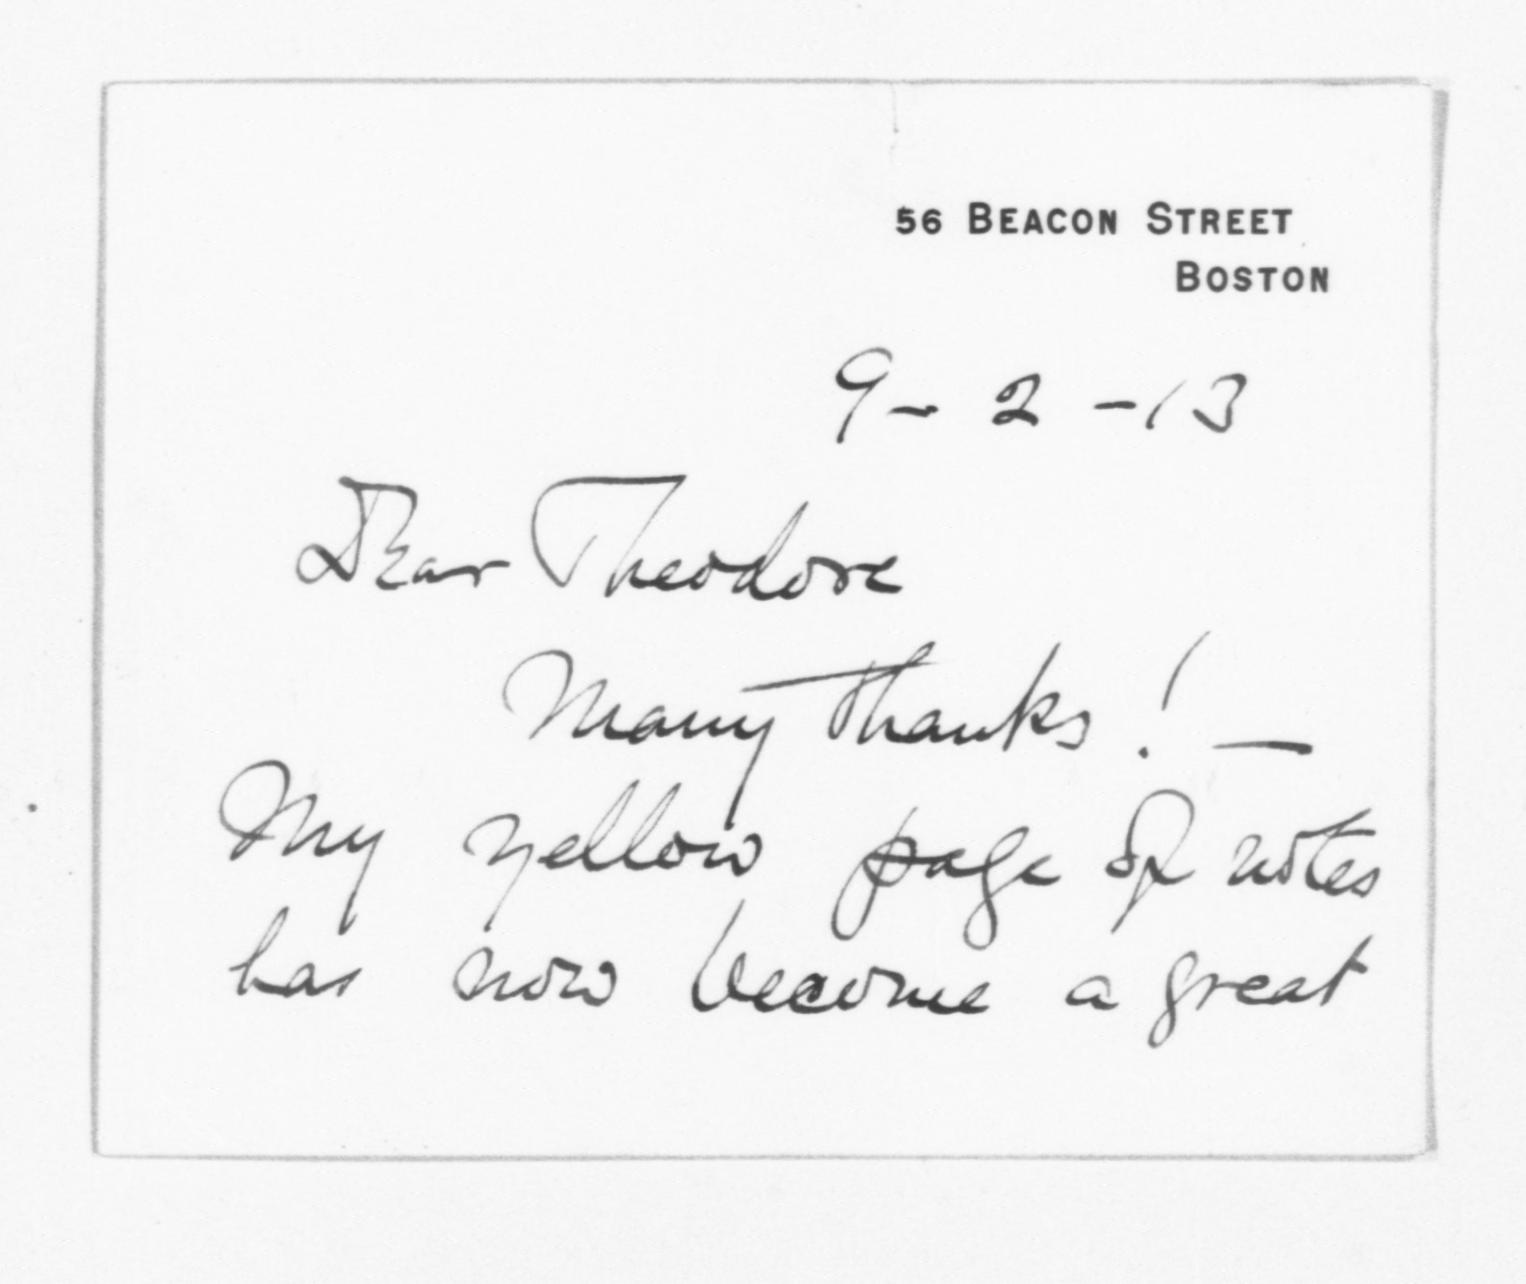 56 BEACON STREET
BOSTON
9 - 2 - 13
Dear Theodore
Many thanks! —
My yellow page of notes
has now become a great